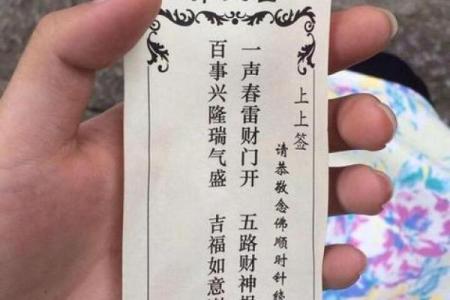 请恭敬念佛顺时针绕
上上签
一声春雷财门开 五路财神
百事兴隆瑞气盛 吉福如意